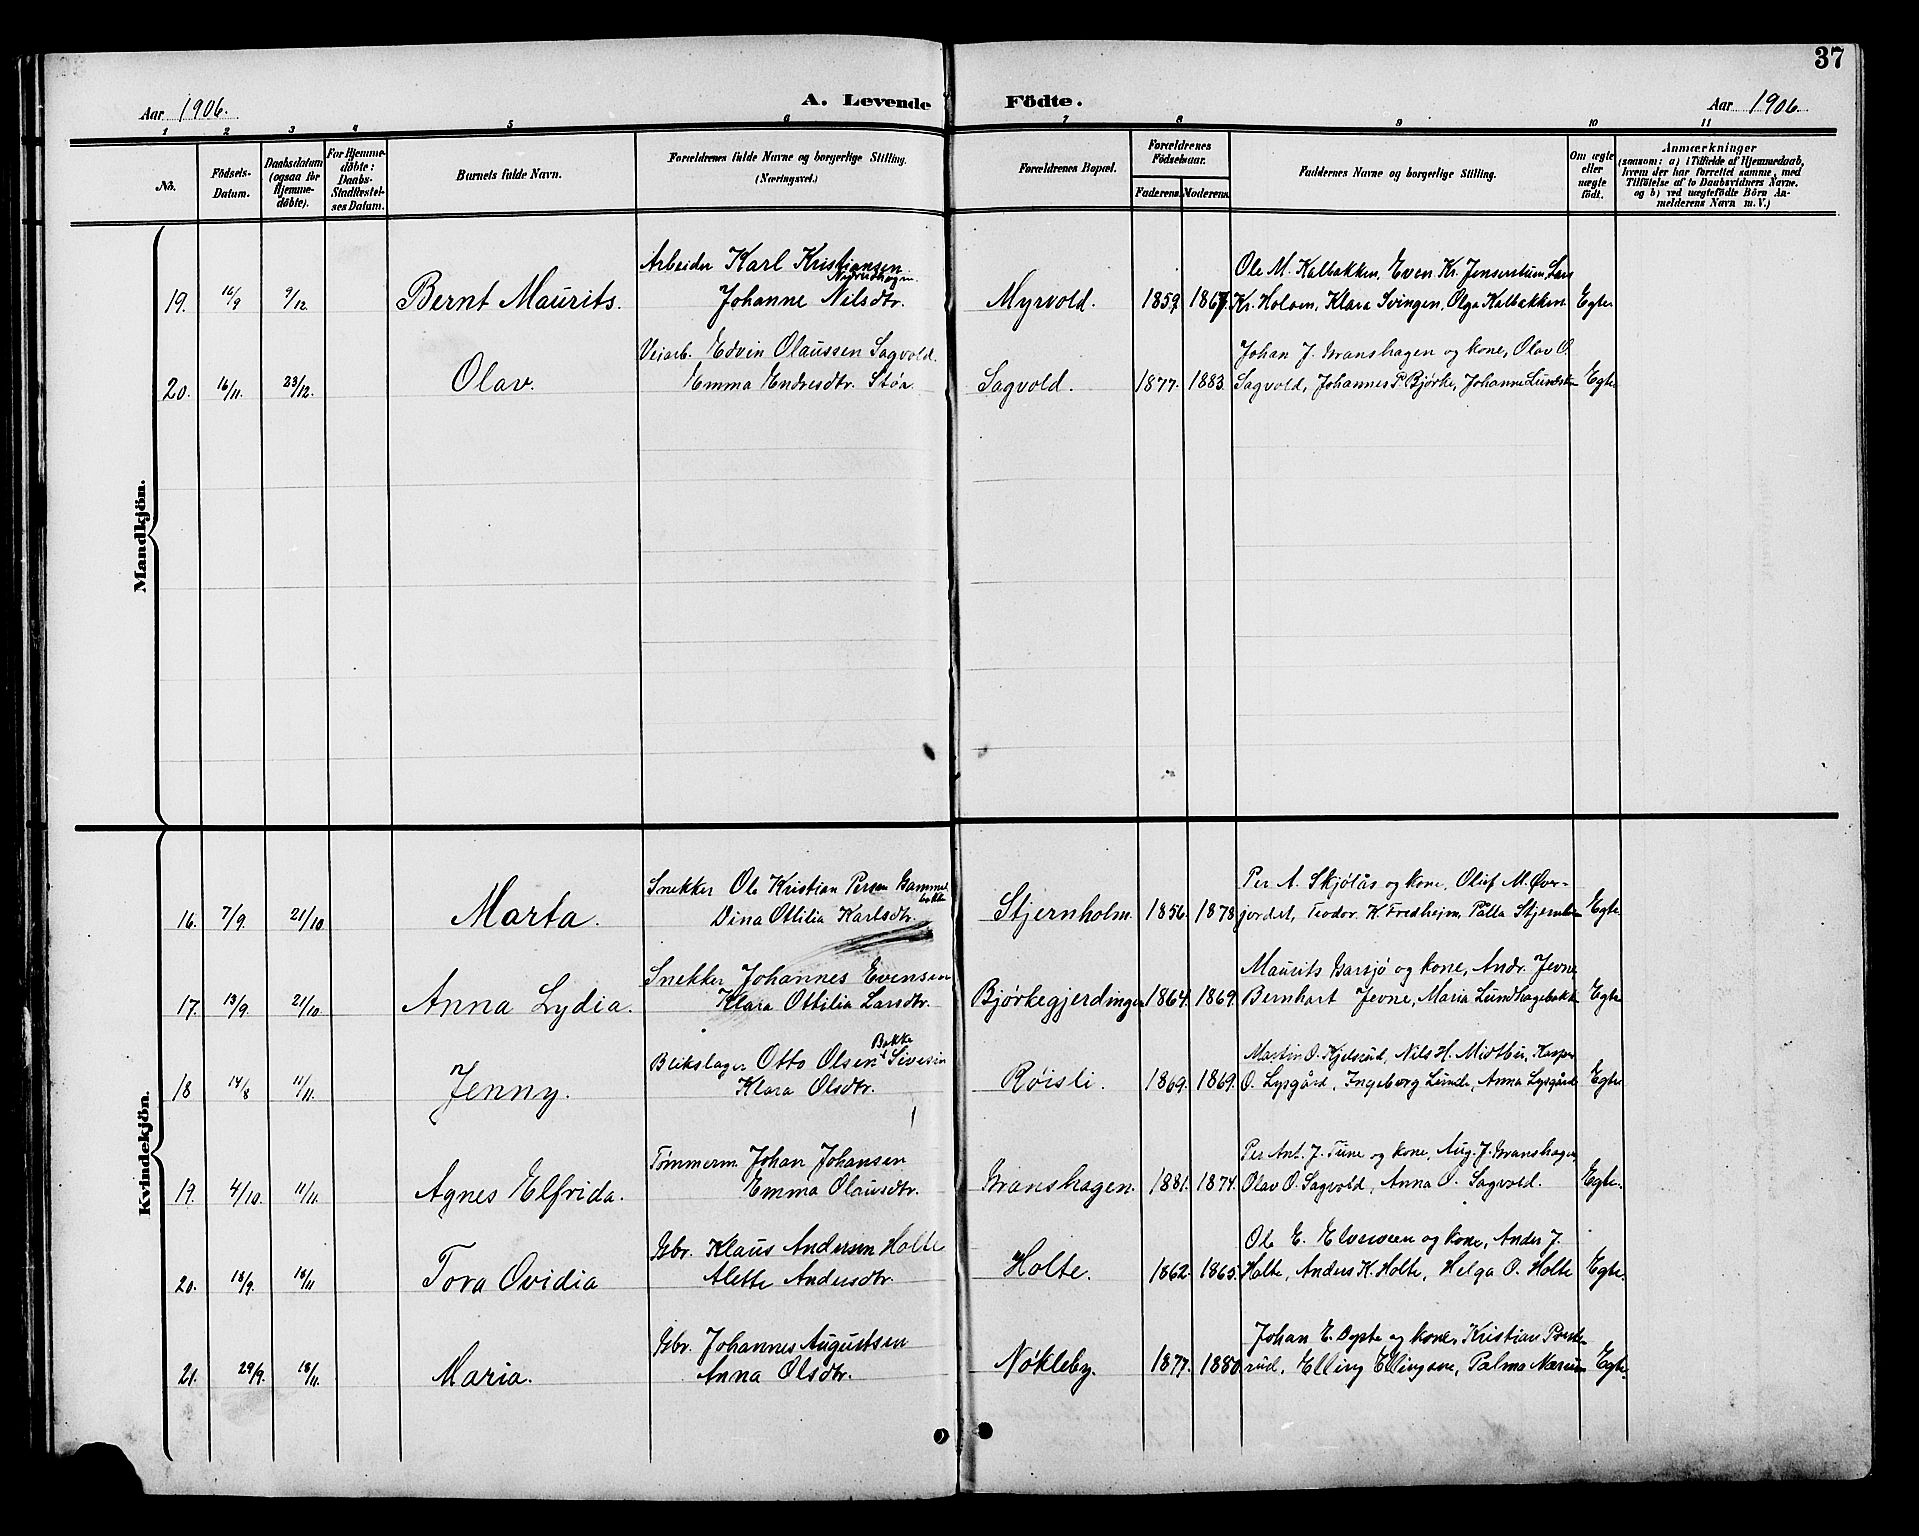 37
Aar 1906. A. Levende Födte. Aar 1906.
1 2 3 4 5 6 7 8 9 10 11
No. Födsels-Datum. Daabsdatum (ogsaa for Hjemmedöbte). For Hjemmedöbte: Daabs-Stadfæstelses Datum. Barnets fulde Navn. Forældrenes fulde Navne og borgerlige Stilling. (Næringsvei.) Forældrenes Bopæl. Forældrenes Födselsaar. Faderens. Moderens. Faddernes Navne og borgerlige Stilling. Om ægte eller uægte født. Anmærkninger (saasom: a) i Tilfælde af Hjemmedaab, hvem der har forrettet samme, med Tilföielse af to Daabsvidners Navne, og b) ved uægtefödte Börn Anmelderens Navn m. V.)
Mandkjön.
Arbeider Karl Kristiansen Ole M. Kalbakken, Even Kr. Jensenstuen Lars
19. 16/9 9/12. Bernt Maurits. Johanne Nilsdtr. Myrvold. 1859. 1867. Kr. Holoen, Klara Svingen, Olga Kalbakken Egte
Veiarb. Edvin Olaussen Sagvold. Johan J. Granshagen og kone, Olav O.
20. 16/11. 23/12. Olav. Emma Endresdtr. Støa. Sagvold. 1877. 1883. Sagvold, Johannes P. Bjørke, Johanne Egte
Kvindekjön.
Snekker Ole Kristian Persen Gammelbakken Per A. Skjølås og kone, Oluf M. Øver-
16. 7/9. 21/10 Marta. Dina Ottilia Karlsdtr. Stjernholm. 1856. 1878. jordet, Teodor. K. Fredheim, Palla Egte
Snekker Johannes Evensen Maurits Garsjø og kone, Andr. Jevne
17. 13/9. 21/10. Anna Lydia. Klara Ottilia Larsdtr. Bjørkegjerdingen 1864. 1869. Bernhart Jevne, Maria Lundhagebakken Egte
Blikslager Otto Olsen Bakke Martin O. Kjelsrud, Nils H. Midtbu, Kasper
18 14/8 11/11. Jenny. Klara Olsdtr. Røisli. 1869. 1869. O. Lysgård, Ingeborg Lunde, Anna Lysgård Egte
Tømmerm. Johan Johansen Per Ant. J. Tune og kone, Aug. J. Granshagen,
19. 4/10. 11/11. Agnes Elfrida. Emma Olausdtr. Granshagen. 1881. 1874. Olav O. Sagvold, Anna O. Sagvold. Egte.
Gbr. Klaus Andersen Holte Ole E. Elveveen og kone, Anders J.
20. 18/9. 18/11 Tora Ovidia Alette Andersdtr. Holte. 1862. 1865. Holte, Anders K. Holte, Helga O. Holte Egte.
Gbr. Johannes Augustsen Johan E. Dyste og kone, Kristian
21. 29/9. 18/11. Maria. Anna Olsdtr. Nøkleby. 1877. 1880. rud, Elling Ellingsen, Palma Egte.